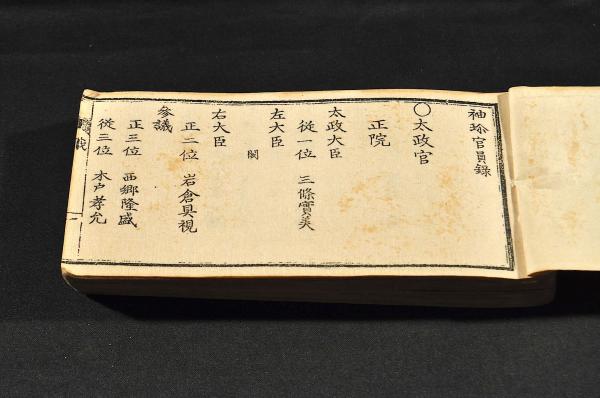 袖珍官員録
○太政官
正院
太政大臣
従一位 三條實美
左大臣
闕
右大臣
正二位 岩倉具視
参議
正三位 西郷隆盛
従三位 木戸孝允
一